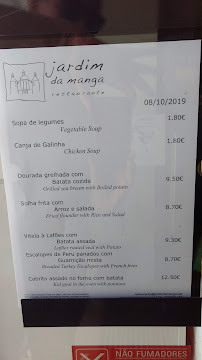 jardim
da manga
restaurante
08/10/2019
Sopa de legumes 1.80€
Vegetable Soup
Canja de Galinha 1.80€
Chicken Soup
Dourada grelhada com
Batata cozida 9.50€
Grilled sea bream with Boiled potato
Solha frita com
Arroz e salada 8.70€
Fried flounder with Rice and Salad
Vitela à Lafões com
Batata assada 9.30€
Lafões roast veal with Potato
Escalopes de Peru panados com
Guarnição mista 8.70€
Breaded Turkey Escalopes with French fries
Cabrito assado no forno com batata 12.50€
Kid goat in the oven with potatoes
NÃO FUMADORES